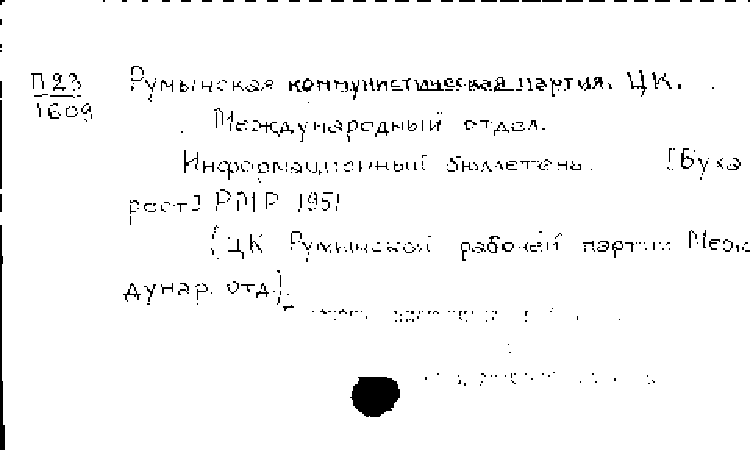 П23 Румынская коммунистическая партия. ЦК.
1609 Международный отдел.
Информационный бюллетень. [Буха
рест] РМР 1951
(ЦК Румынской рабочей партии Меж
дунар. отд.)